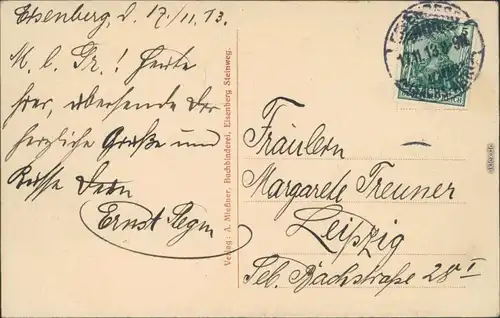 Eisenberg, d. 17/11.13.
M. l. Gr.! Heute
hier, übersende Dir
herzliche Grüße und
Küsse Dein
Ernst
Verlag: A. Mießner, Buchbinderei, Eisenberg Steinweg.
Fräulein
Margarete Treuner
Leipzig
Seb. Bachstraße 28 I